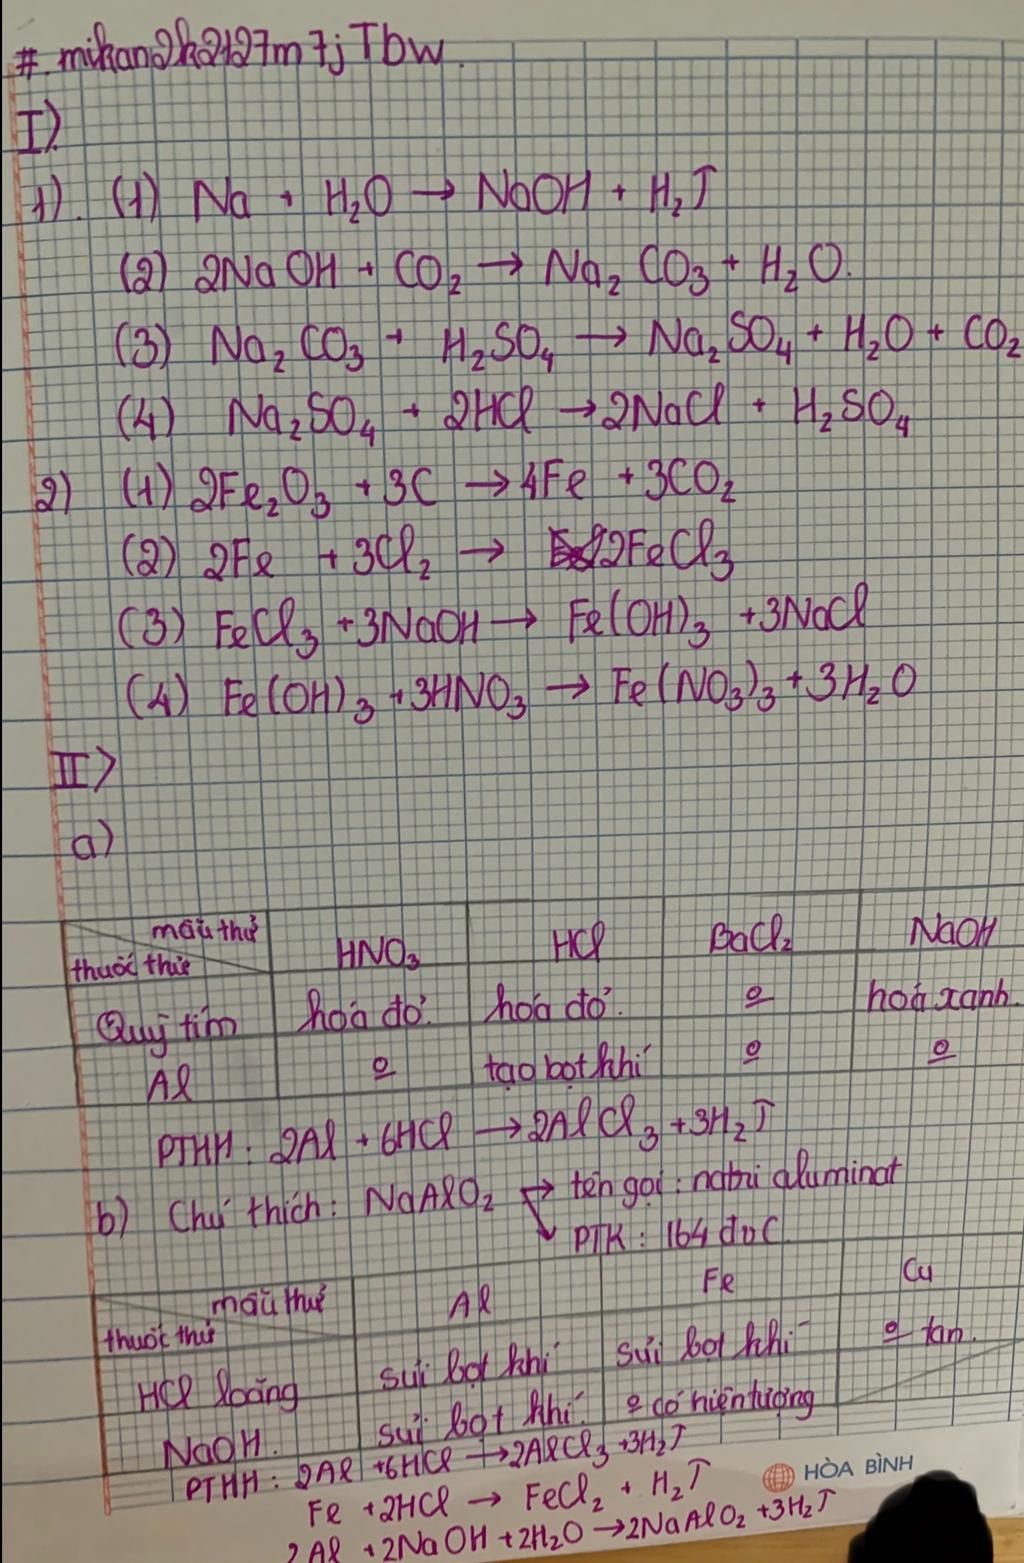 # mikan2k2127m7jTbw.
I).
1). (1) Na + H₂O → NaOH + H₂↑
(2) 2NaOH + CO₂ → Na₂CO₃ + H₂O.
(3) Na₂CO₃ + H₂SO₄ → Na₂SO₄ + H₂O + CO₂
(4) Na₂SO₄ + 2HCl → 2NaCl + H₂SO₄
2) (1) 2Fe₂O₃ + 3C → 4Fe + 3CO₂
(2) 2Fe + 3Cl₂ → 2FeCl₃
(3) FeCl₃ + 3NaOH → Fe(OH)₃ + 3NaCl
(4) Fe(OH)₃ + 3HNO₃ → Fe(NO₃)₃ + 3H₂O
II>
a)
mẫu thử HNO₃ HCl BaCl₂ NaOH
thuốc thử
Quỳ tím hoá đỏ. hoá đỏ. o hoá xanh.
Al o tạo bọt khí o o
PTHH: 2Al + 6HCl → 2AlCl₃ + 3H₂↑
b) Chú thích: NaAlO₂ → tên gọi: natri aluminat
↘ PTK: 164 đvC
mẫu thử Al Fe Cu
thuốc thử
HCl loãng sủi bọt khí sủi bọt khí o tan.
NaOH. sủi bọt khí. o có hiện tượng
PTHH: 2Al + 6HCl → 2AlCl₃ + 3H₂↑
Fe + 2HCl → FeCl₂ + H₂↑
2Al + 2NaOH + 2H₂O → 2NaAlO₂ + 3H₂↑
HÒA BÌNH